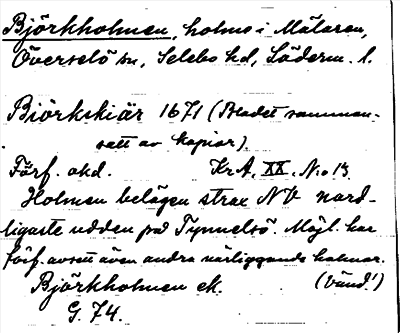 Björkholmen, holme i Mälaren,
Överselö sn, Selebo hd, Söderm. l.
Biörkskiär 1671 (Bladet samman-
satt av kopior).
Förf. okd. Kr.A. XX. N:o 13
Holmen belägen strax NV nord-
ligaste udden på Tynnelsö. Möjl. har
förf. avsett även andra närliggande holmar.
Björkholmen ek. (Vänd!)
G. 74.